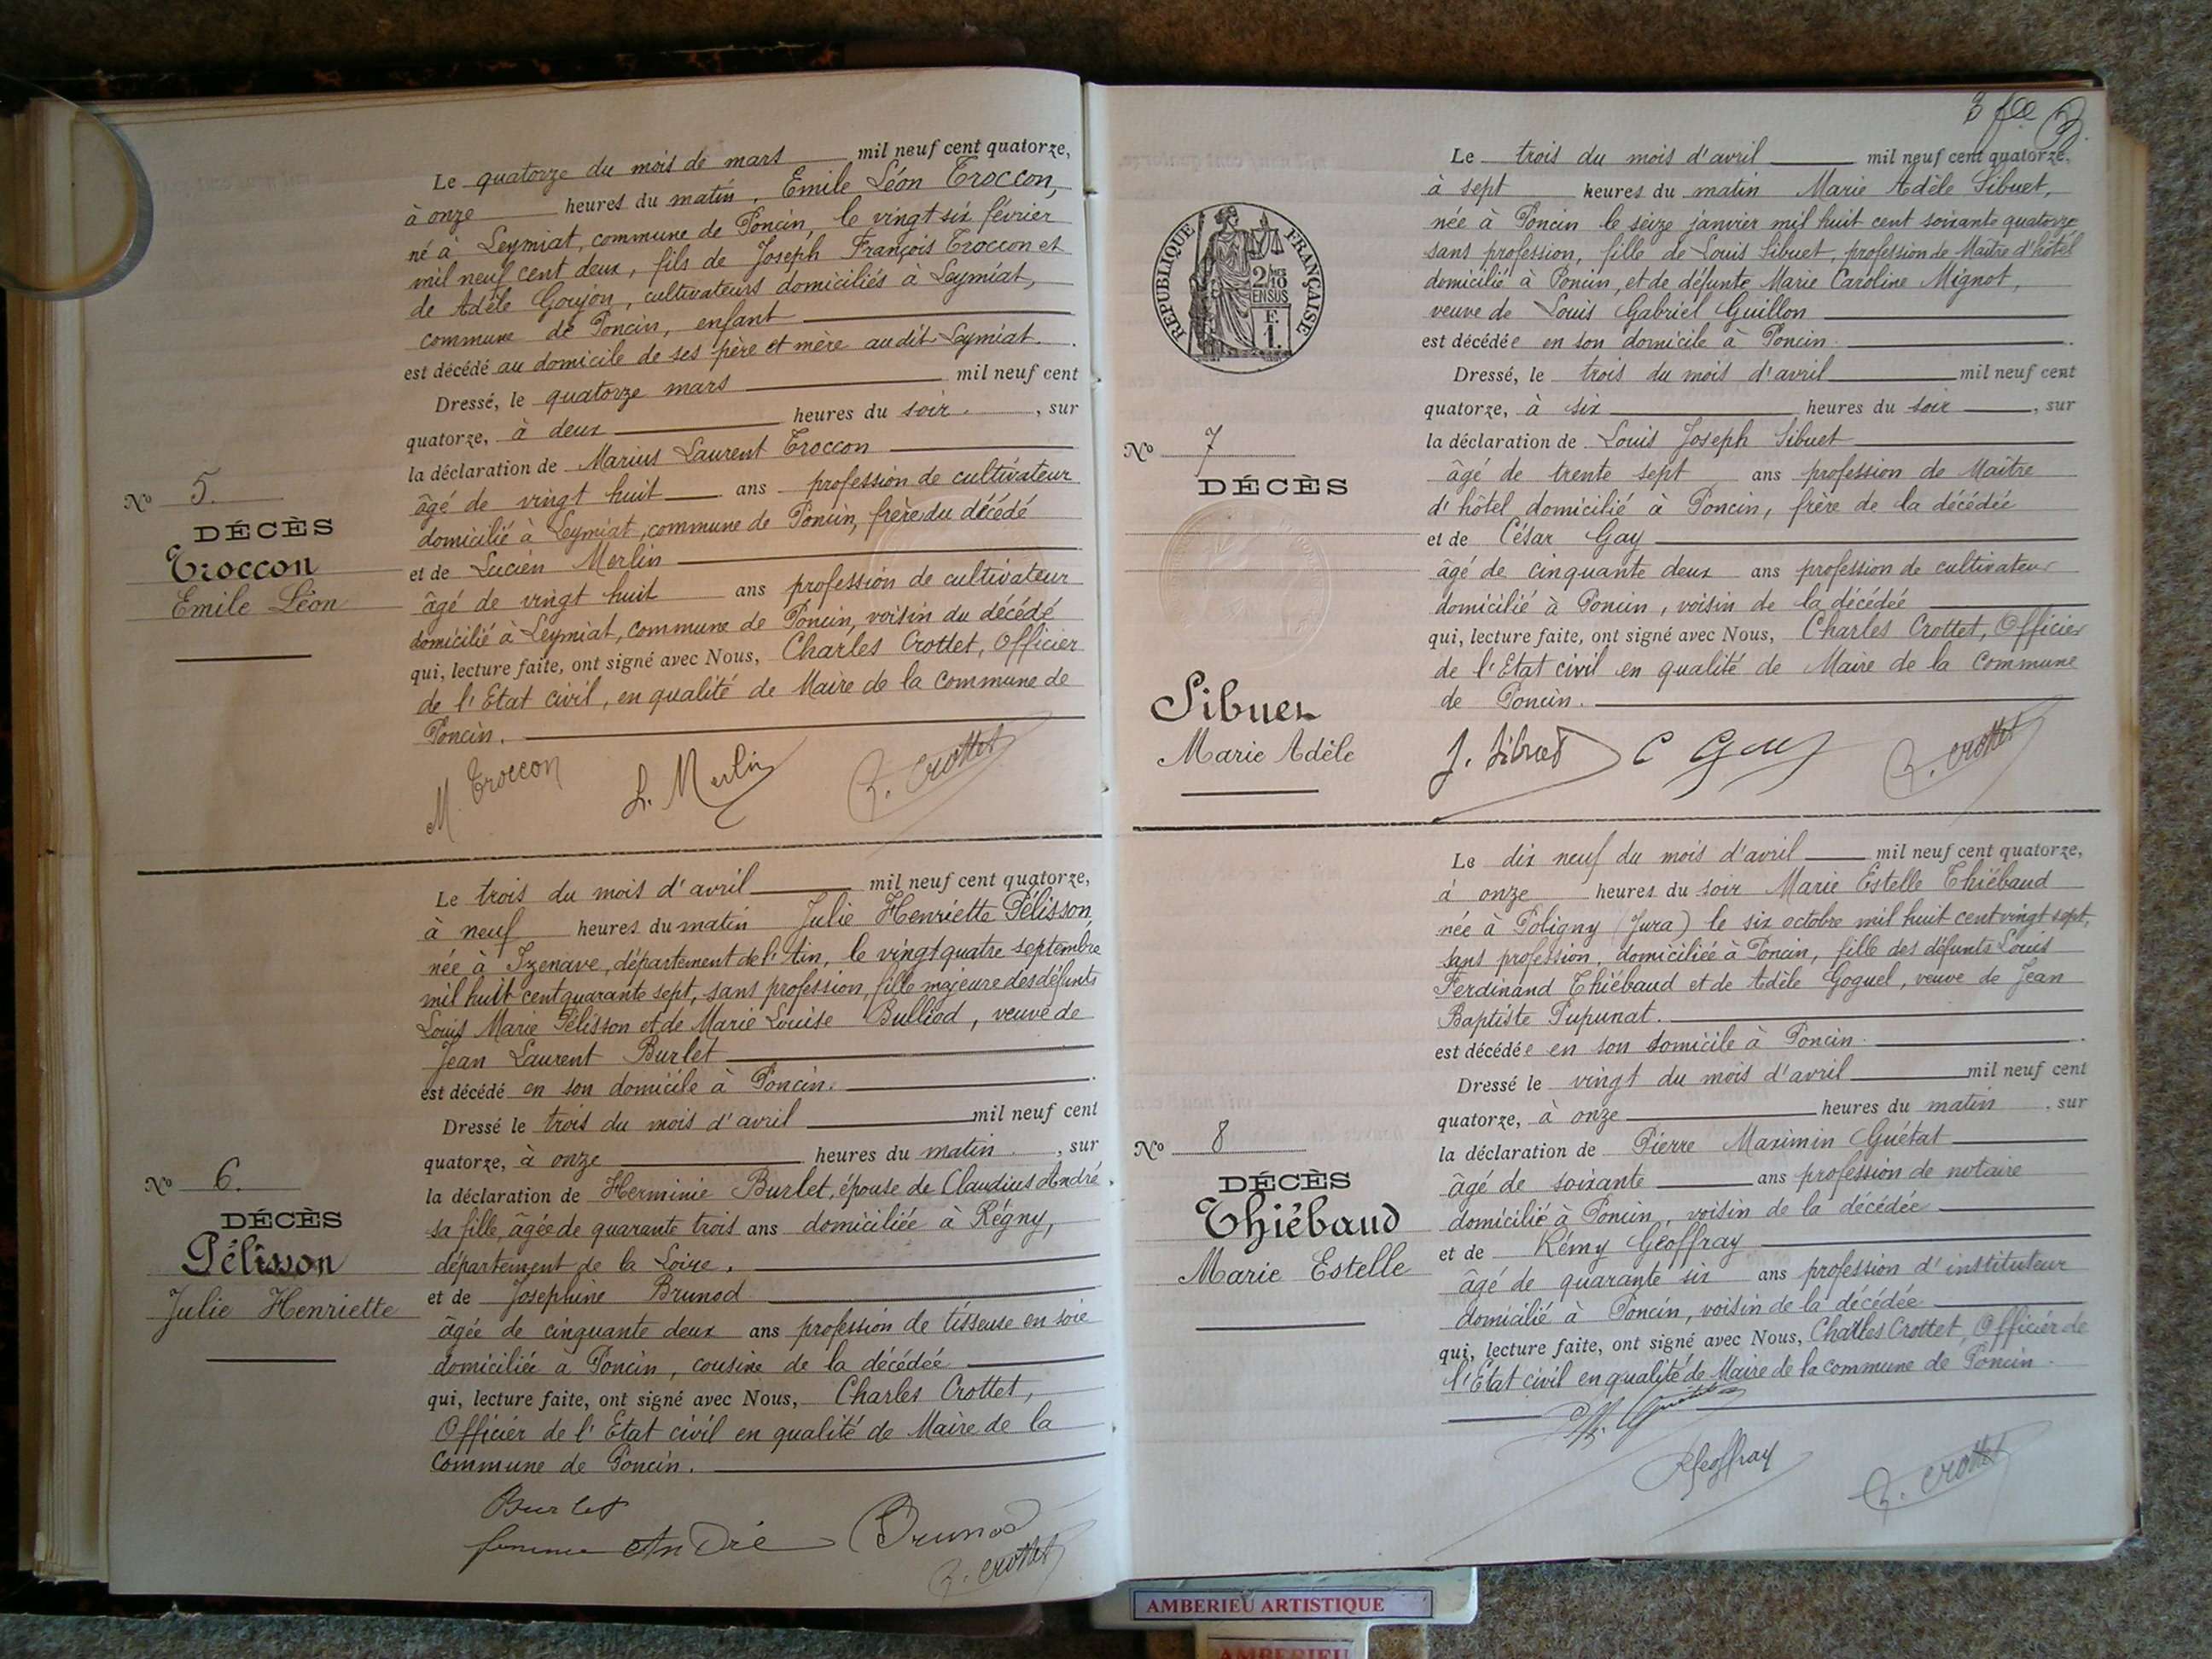 Le quatorze du mois de mars mil neuf cent quatorze,
à onze heures du matin, Emile Léon Troccon,
né à Leymiat, commune de Poncin, le vingt six février
mil neuf cent deux, fils de Joseph François Troccon et
de Adèle Goujon, cultivateurs domiciliés à Leymiat,
commune de Poncin, enfant
est décédé au domicile de ses père et mère au dit Leymiat.
Dressé, le quatorze mars mil neuf cent
quatorze, à deux heures du soir, sur
la déclaration de Marius Laurent Troccon
âgé de vingt huit ans profession de cultivateur
domicilié à Leymiat, commune de Poncin, frère du décédé
et de Lucien Merlin
âgé de vingt huit ans profession de cultivateur
domicilié à Leymiat, commune de Poncin, voisin du décédé
qui, lecture faite, ont signé avec Nous, Charles Crottet, Officier
de l'Etat civil, en qualité de Maire de la commune de
Poncin.
M. Troccon L. Merlin C. Crottet
No 5.
DÉCÈS
Troccon
Emile Léon
Le trois du mois d'avril mil neuf cent quatorze,
à neuf heures du matin Julie Henriette Pélisson
née à Izenave, département de l'Ain, le vingt quatre septembre
mil huit cent quarante sept, sans profession, fille majeure des défunts
Louis Marie Pélisson et de Marie Louise Bulliod, veuve de
Jean Laurent Burlet
est décédé en son domicile à Poncin.
Dressé le trois du mois d'avril mil neuf cent
quatorze, à onze heures du matin, sur
la déclaration de Herminie Burlet, épouse de Claudius André,
sa fille, âgée de quarante trois ans domiciliée à Régny,
département de la Loire.
et de Joséphine Brunod
âgée de cinquante deux ans profession de tisseuse en soie
domiciliée à Poncin, cousine de la décédée
qui, lecture faite, ont signé avec Nous, Charles Crottet,
Officier de l'Etat civil en qualité de Maire de la
Commune de Poncin.
Burlet
femme André Brunod
C. Crottet
No 6.
DÉCÈS
Pélisson
Julie Henriette
3 fle 3
RÉPUBLIQUE FRANÇAISE
2/10
EN SUS
F.
1.
Le trois du mois d'avril mil neuf cent quatorze,
à sept heures du matin Marie Adèle Sibuet,
née à Poncin le seize janvier mil huit cent soixante quatorze
sans profession, fille de Louis Sibuet, profession de Maître d'hôtel
domicilié à Poncin, et de défunte Marie Caroline Mignot,
veuve de Louis Gabriel Guillon
est décédée en son domicile à Poncin.
Dressé, le trois du mois d'avril mil neuf cent
quatorze, à six heures du soir, sur
la déclaration de Louis Joseph Sibuet
âgé de trente sept ans profession de Maître
d'hôtel domicilié à Poncin, frère de la décédée
et de César Gay
âgé de cinquante deux ans profession de cultivateur
domicilié à Poncin, voisin de la décédée
qui, lecture faite, ont signé avec Nous, Charles Crottet, Officier
de l'Etat civil en qualité de Maire de la commune
de Poncin.
J. Sibuet C Gay C. Crottet
No 7
DÉCÈS
Sibuet
Marie Adèle
Le dix neuf du mois d'avril mil neuf cent quatorze,
à onze heures du soir Marie Estelle Thiébaud
née à Poligny (Jura) le six octobre mil huit cent vingt sept,
sans profession, domiciliée à Poncin, fille des défunts Louis
Ferdinand Thiébaud et de Adèle Goguel, veuve de Jean
Baptiste Pupunat.
est décédée en son domicile à Poncin.
Dressé le vingt du mois d'avril mil neuf cent
quatorze, à onze heures du matin, sur
la déclaration de Pierre Maximin Guétat
âgé de soixante ans profession de notaire
domicilié à Poncin, voisin de la décédée
et de Rémy Geoffray
âgé de quarante six ans profession d'instituteur
domicilié à Poncin, voisin de la décédée
qui, lecture faite, ont signé avec Nous, Charles Crottet, Officier de
l'Etat civil en qualité de Maire de la commune de Poncin.
RGeoffray C. Crottet
No 8
DÉCÈS
Thiébaud
Marie Estelle
AMBERIEU ARTISTIQUE
AMBERIEU